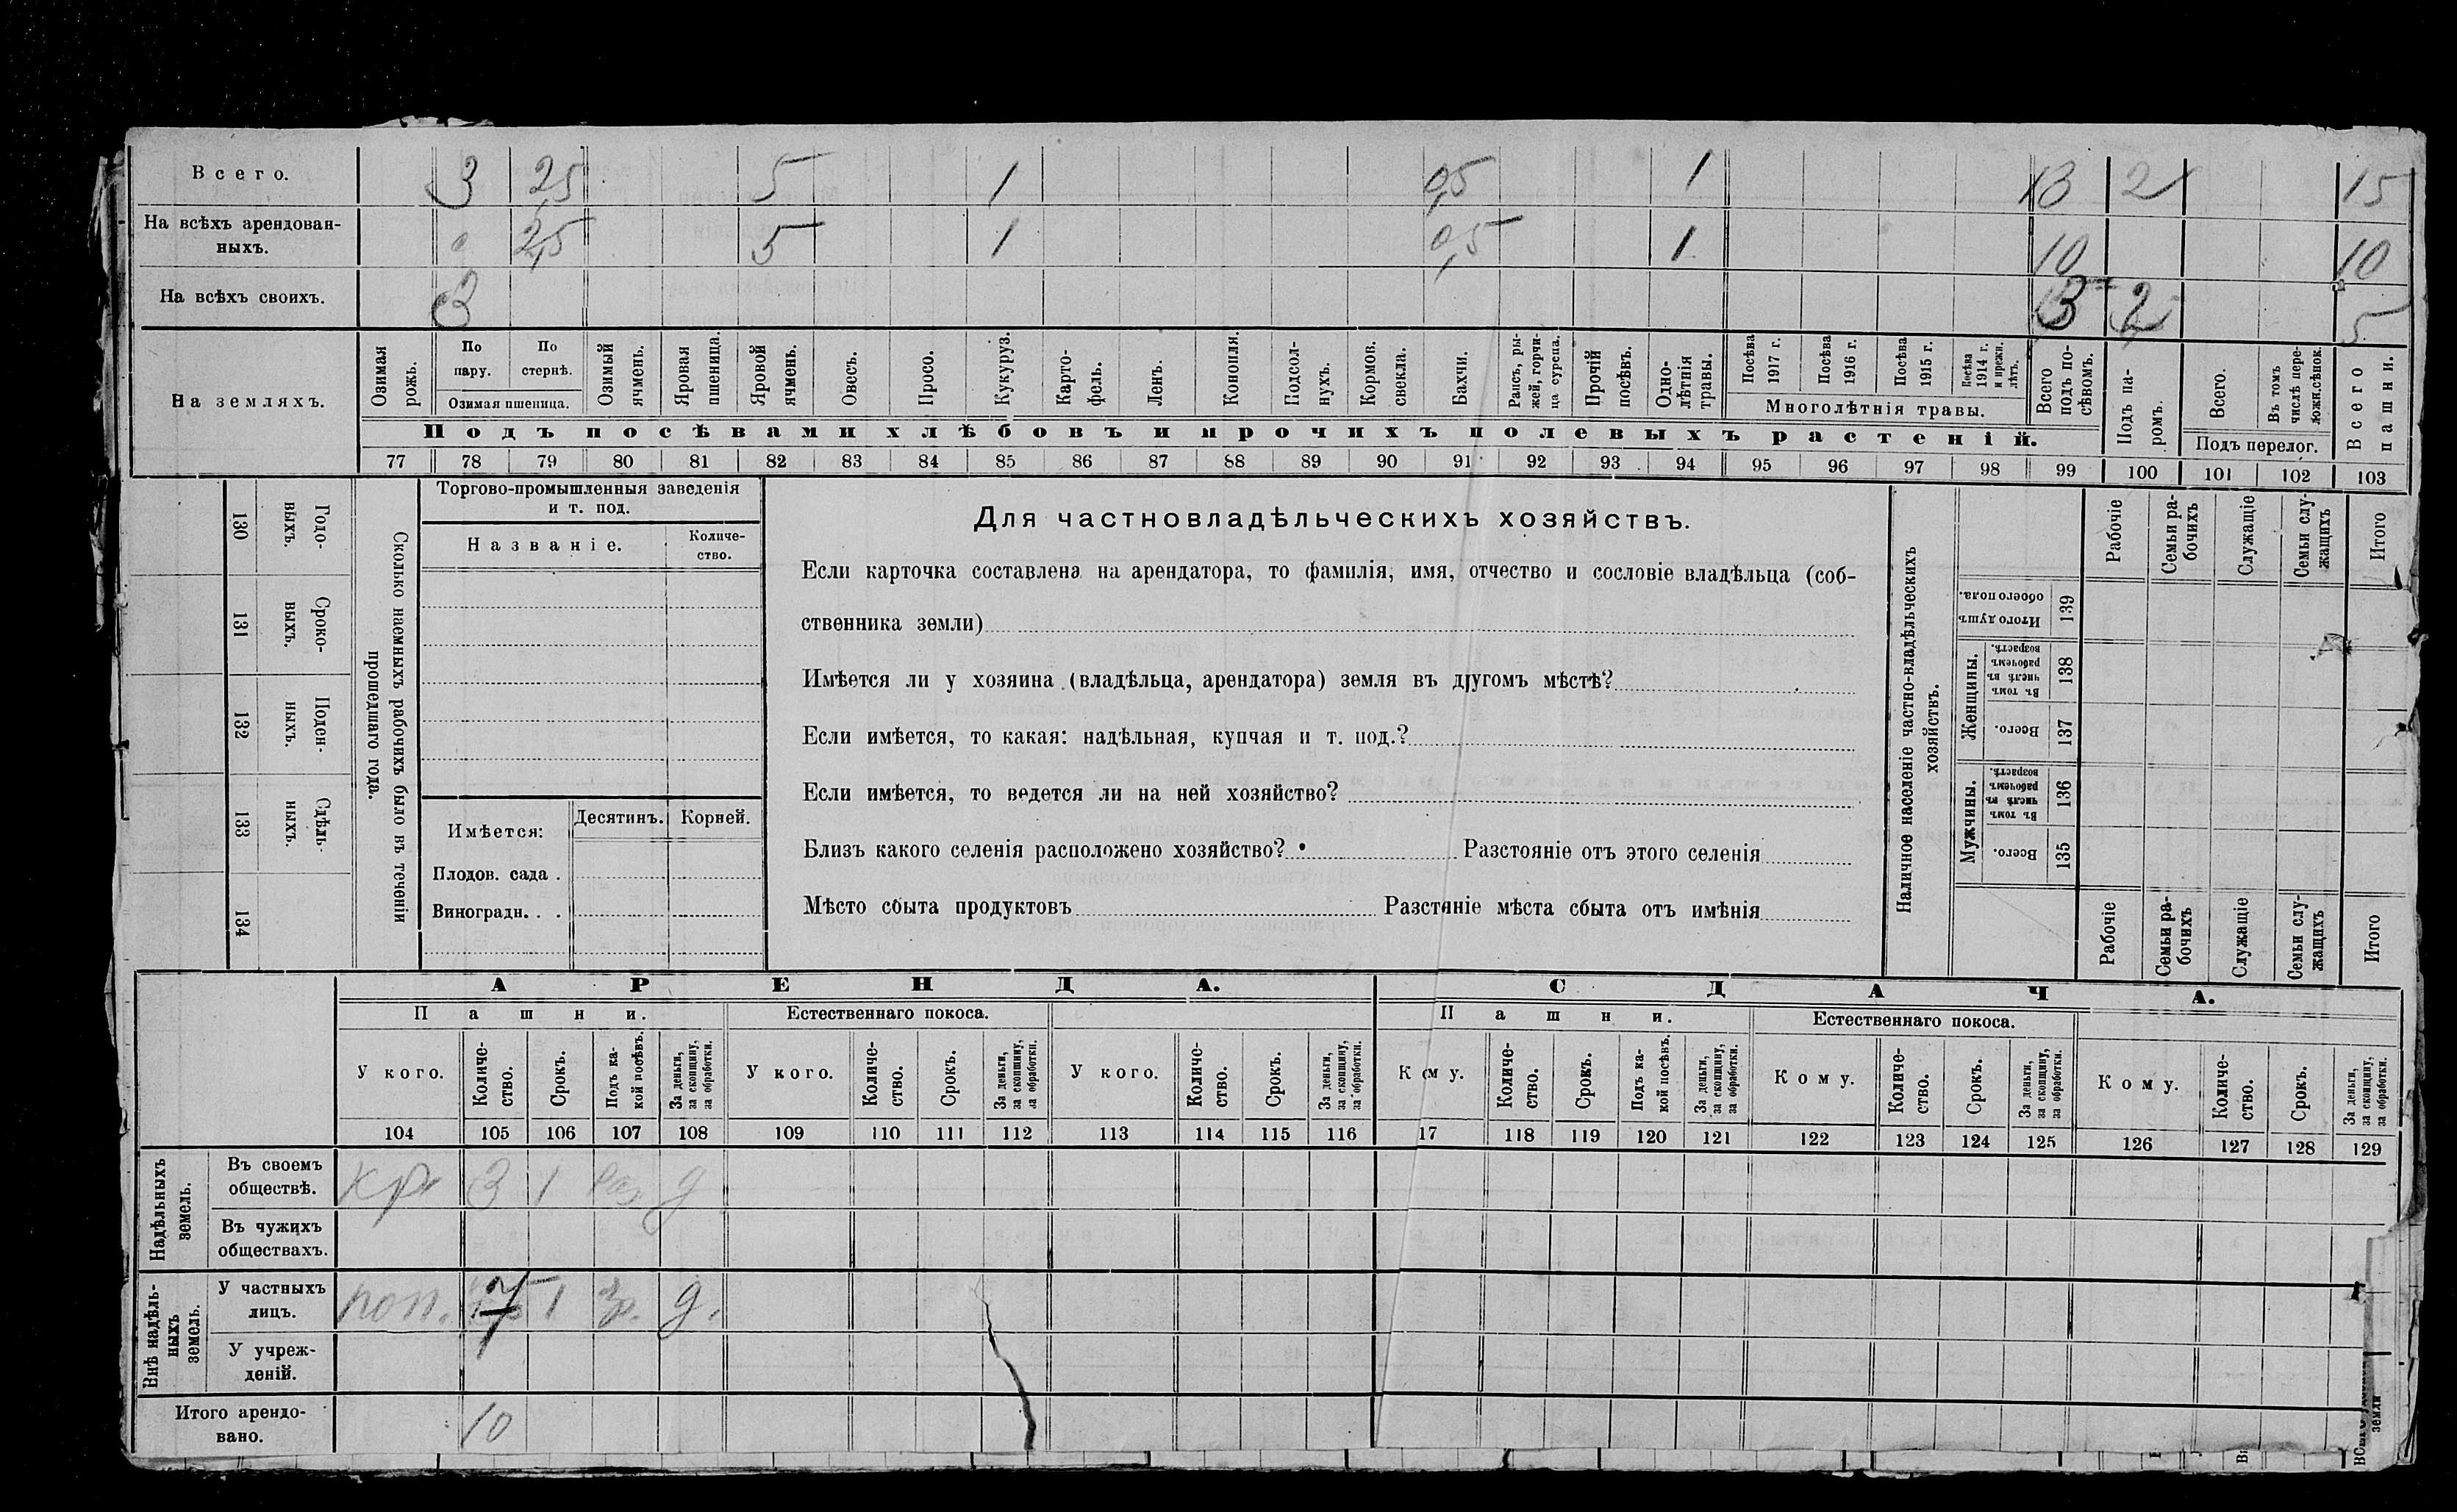 Всего. 3 2,5 5 1 0,5 1 13 2 15
На всѣхъ арендован-
ныхъ. 2,5 5 1 0,5 1 10 10
На всѣхъ своихъ. 3 3 2 5
На земляхъ.
Озимая рожь.
По пару.
По стернѣ.
Озимая пшеница.
Озимый ячмень.
Яровая пшеница.
Яровой ячмень.
Овесъ.
Просо.
Кукуруз.
Карто-
фель.
Ленъ.
Конопля.
Подсол-
нухъ.
Кормов.
свекла.
Бахчи.
Рапсъ, ры-
жей, горчи-
ца сурепа.
Прочій
посѣвъ.
Одно-
лѣтнія
травы.
Посѣва
1917 г.
Посѣва
1916 г.
Посѣва
1915 г.
Посѣва
1914 г.
и прежн.
лѣтъ.
Многолѣтнія травы.
Всего
подъ по-
сѣвомъ.
Подъ па-
ромъ.
Всего.
Въ томъ
числѣ пере-
ложн.сѣнок.
Подъ перелог.
Всего
пашни.
Подъ посѣвами хлѣбовъ и прочихъ полевыхъ растеній.
77 78 79 80 81 82 83 84 85 86 87 88 89 90 91 92 93 94 95 96 97 98 99 100 101 102 103
130 Годо-
выхъ.
131 Сроко-
выхъ.
132 Поден-
ныхъ.
133 Сдѣль-
ныхъ.
134
Сколько наемныхъ рабочихъ было въ теченіи
прошедшаго года.
Торгово-промышленныя заведенія
и т. под.
Названіе.
Количе-
ство.
Имѣется: Десятинъ. Корней.
Плодов. сада .
Виноградн. . .
Для частновладѣльческихъ хозяйствъ.
Если карточка составлена на арендатора, то фамилія, имя, отчество и сословіе владѣльца (соб-
ственника земли)
Имѣется ли у хозяина (владѣльца, арендатора) земля въ другомъ мѣстѣ?
Если имѣется, то какая: надѣльная, купчая и т. под.?
Если имѣется, то ведется ли на ней хозяйство?
Близъ какого селенія расположено хозяйство? Разстояніе отъ этого селенія
Мѣсто сбыта продуктовъ Разстяніе мѣста сбыта отъ имѣнія
Наличное населеніе частно-владѣльческихъ
хозяйствъ.
Рабочіе
Семьи ра-
бочихъ
Служащіе
Семьи слу-
жащихъ
Итого
Итого душъ
обоего пола.
139
Женщины.
Въ томъ
числѣ въ
рабочемъ
возрастѣ.
138
Всего.
137
Мужчины.
Въ томъ
числѣ въ
рабочемъ
возрастѣ.
136
Всего.
135
Рабочіе
Семьи ра-
бочихъ
Служащіе
Семьи слу-
жащихъ
Итого
АРЕНДА. СДАЧА.
Пашни. Естественнаго покоса. Пашни. Естественнаго покоса.
У кого.
Количе-
ство.
Срокъ.
Подъ ка-
кой посѣвъ.
За деньги,
за скопщину,
за обработки.
У кого.
Количе-
ство.
Срокъ.
За деньги,
за скопщину,
за обработки.
У кого.
Количе-
ство.
Срокъ.
За деньги,
за скопщину,
за обработки.
Кому.
Количе-
ство.
Срокъ.
Подъ ка-
кой посѣвъ.
За деньги,
за скопщину,
за обработки.
Кому.
Количе-
ство.
Срокъ.
За деньги,
за скопщину,
за обработки.
Кому.
Количе-
ство.
Срокъ.
За деньги,
за скопщину,
за обработки.
104 105 106 107 108 109 110 111 112 113 114 115 116 17 118 119 120 121 122 123 124 125 126 127 128 129
Надѣльныхъ
земель.
Въ своемъ
обществѣ. кр 3 1 д
Въ чужихъ
обществахъ.
Внѣ надѣль-
ныхъ
земель.
У частныхъ
лицъ. поп. 7 1 д.
У учреж-
деній.
Итого арендо-
вано. 10
земли